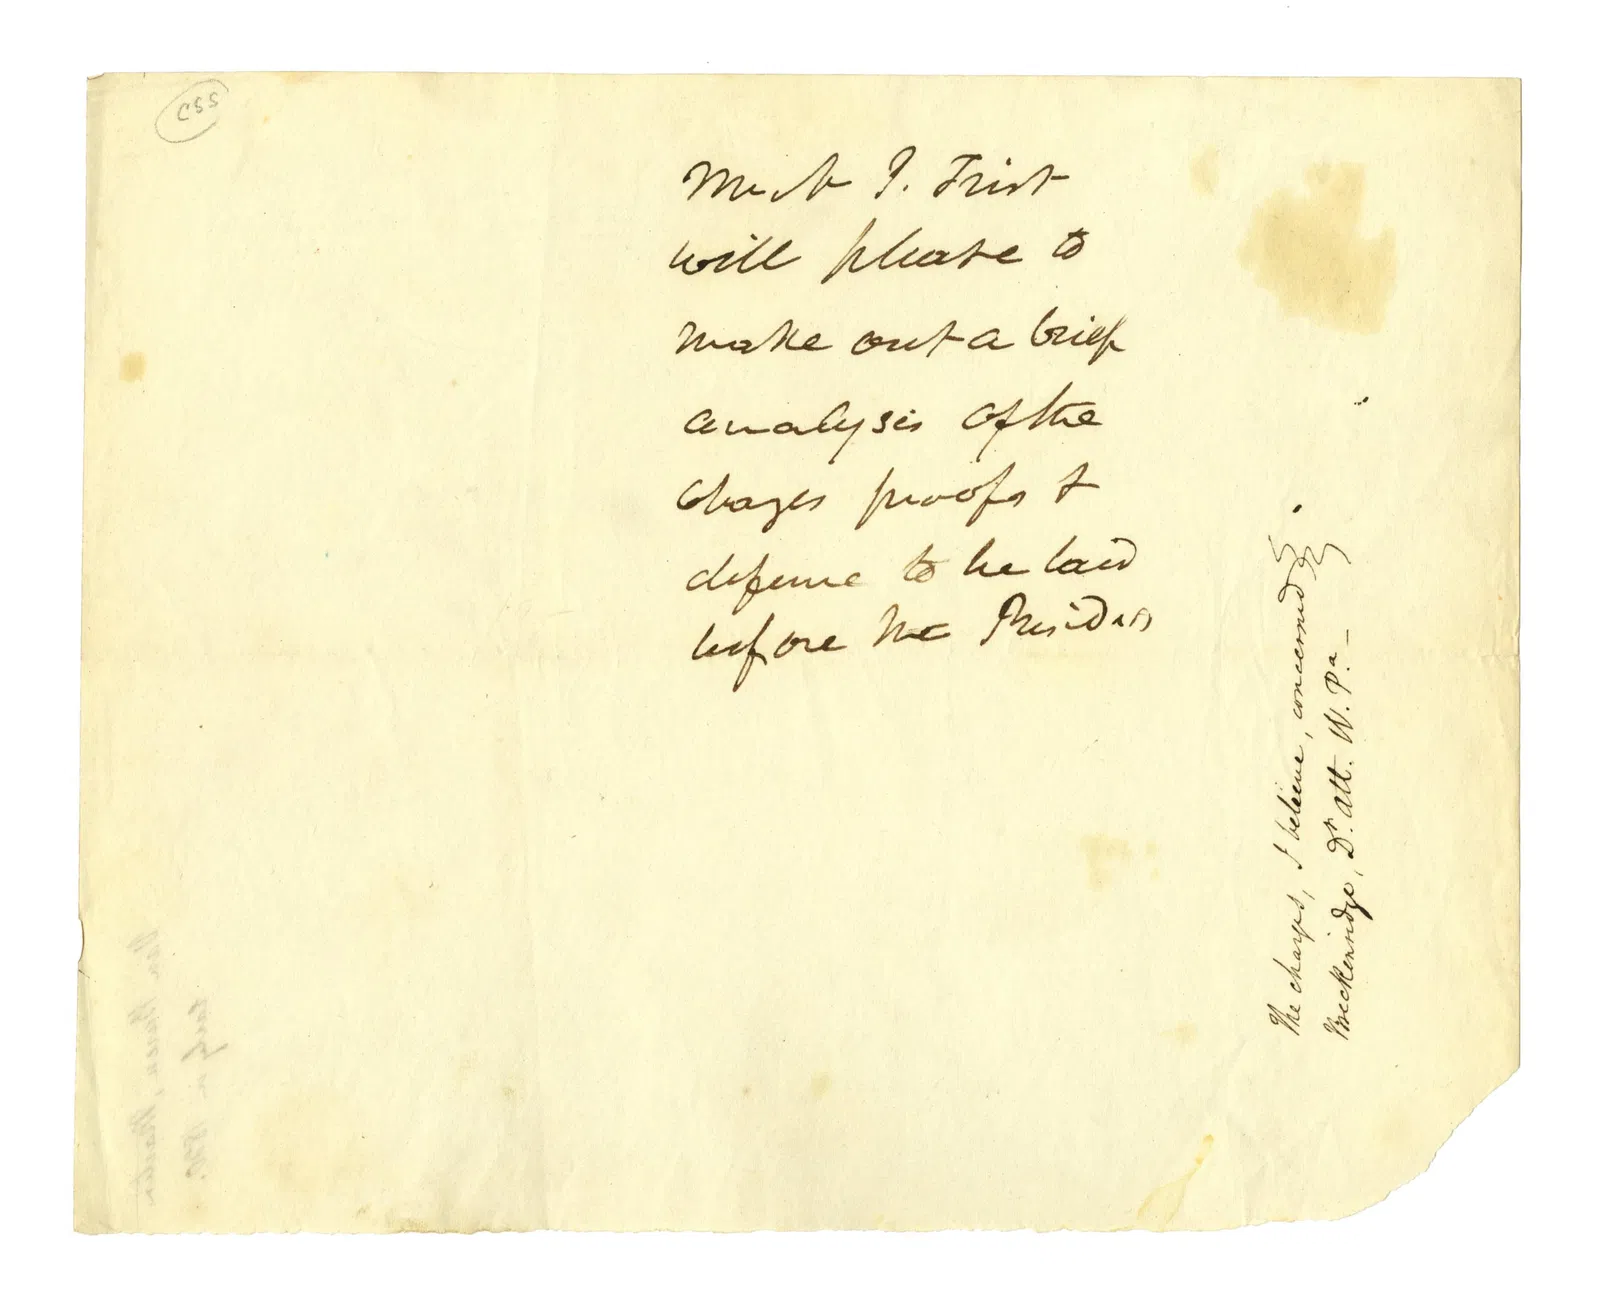 css
Nich P. Trist
will please to
make out a brief
analysis of the
charges proofs &
defence to be laid
before the President
The charges, I believe, concerned
Breckenridge, Dr. Att. W. Pa. —
Van Buren,
early in 1830.